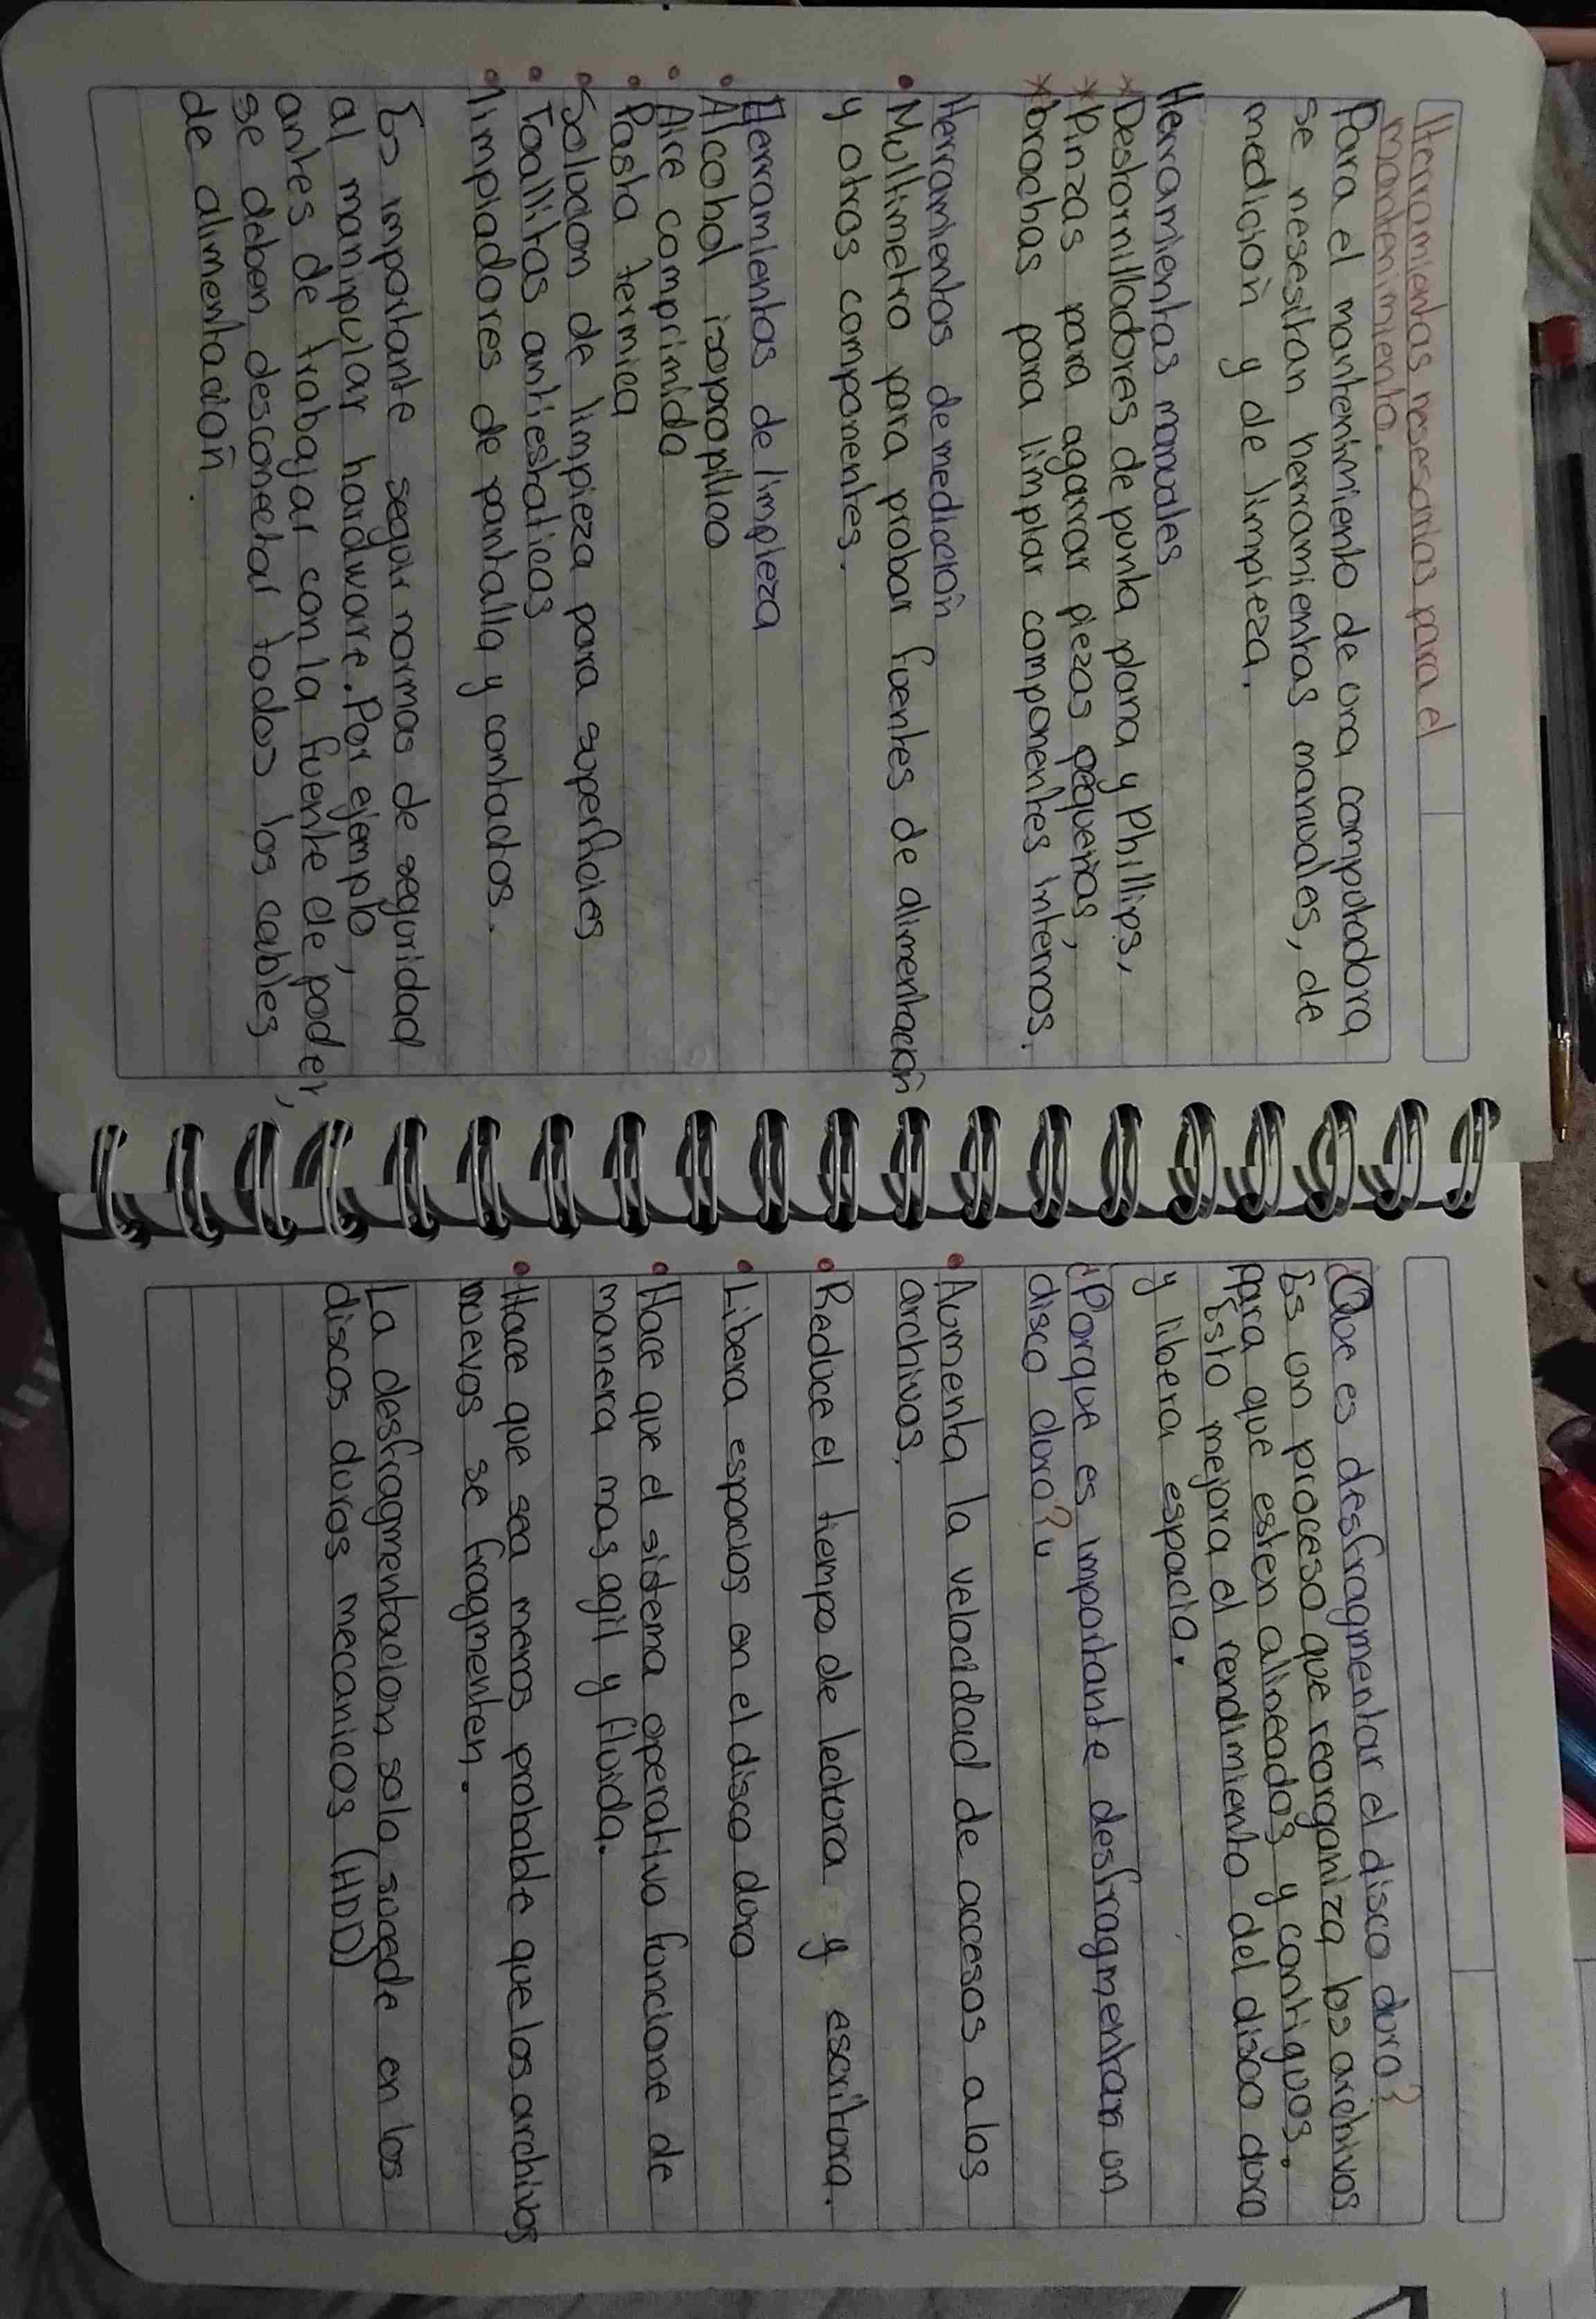 Herramientas nesesarias para el
mantenimiento.
Para el mantenimiento de una computadora
se nesesitan herramientas manuales, de
medición y de limpieza.
Herramientas manuales
* Destornilladores de punta plana y Phillips,
* Pinzas para agarrar piezas pequeñas,
* brochas para limpiar componentes internos.
Herramientas de medición
• Multimetro para probar fuentes de alimentación
y otros componentes.
Herramientas de limpieza
• Alcohol isopropilico
• Aire comprimido
• Pasta termica
• Solucion de limpieza para superficies
• Toallitas antiestaticas
• limpiadores de pantalla y contactos.
Es importante seguir normas de seguridad
al manipular hardware. Por ejemplo,
antes de trabajar con la fuente de poder,
se deben desconectar todos los cables
de alimentación.
¿Que es desfragmentar el disco duro?
Es un proceso que reorganiza los archivos
para que esten alineados y contiguos.
Esto mejora el rendimiento del disco duro
y libera espacio.
¿Porque es importante desfragmentar un
disco duro?
• Aumenta la velocidad de accesos a los
archivos.
• Reduce el tiempo de lectura y escritura.
• Libera espacios en el disco duro
• Hace que el sistema operativo funcione de
manera mas agil y fluida.
• Hace que sea menos probable que los archivos
nuevos se fragmenten.
La desfragmentacion solo sucede en los
discos duros mecanicos (HDD)